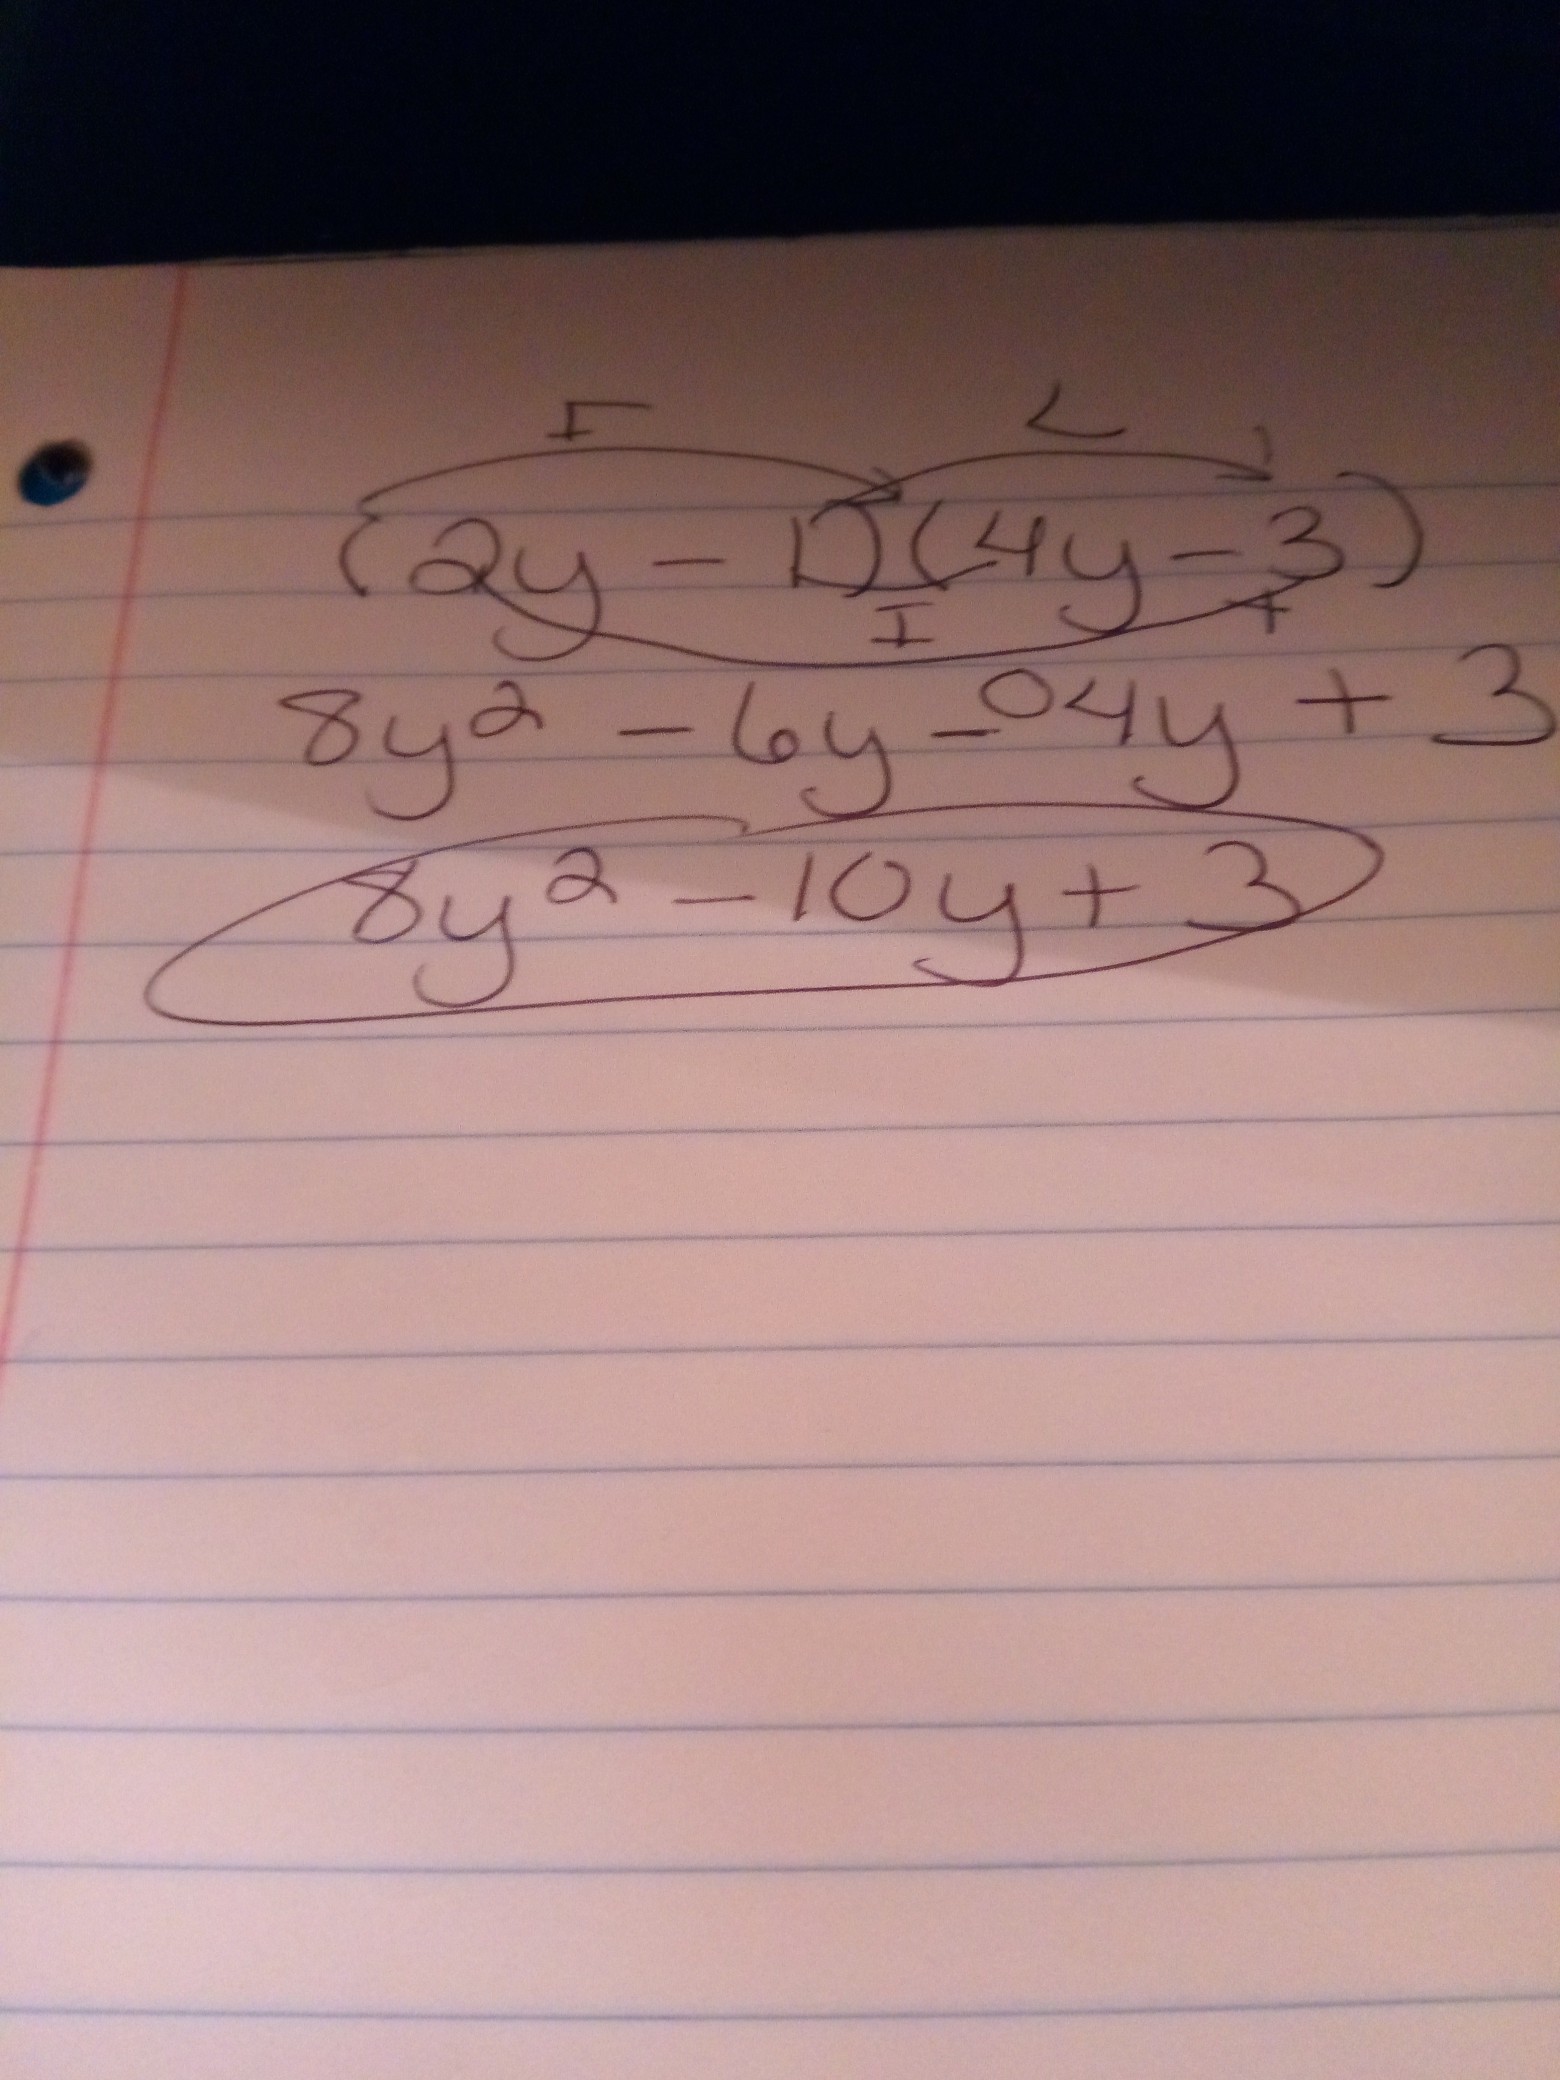 F L
(2y - 1)(4y - 3)
I
8y² - 6y - 4y + 3
O
8y² - 10y + 3